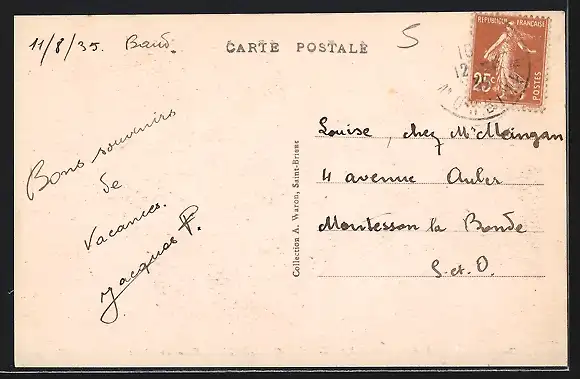 11/8/35. Baud.
CARTE POSTALE
5
REPUBLIQUE FRANÇAISE
25c
POSTES
Bons souvenirs
de
vacances.
Jacques F.
Collection A. Waron, Saint-Brieuc
Louise, chez Mr Meingan
4 avenue Auber
Montesson la Borde
S. et. O.